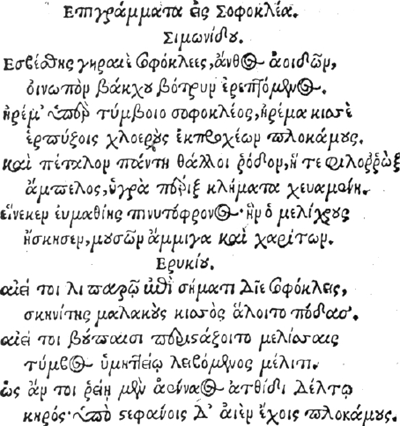 Επιγράμματα εἰς Σοφοκλέα.
Σιμωνίδου.
Εσβέσθης γηραιὲ Σοφόκλεες, ἄνθος ἀοιδῶν,
οἰνωπὸν βάκχου βότρυν ἐρεπτόμενος.
ἠρέμ' ὑπὲρ τύμβοιο σοφοκλέος, ἠρέμα κισσὲ
ἑρπύζοις χλοεροὺς ἐκπροχέων πλοκάμους.
καὶ πέταλον πάντη θάλλοι ῥόδον, ἥ τε φιλορρὼξ
ἄμπελος, ὑγρὰ πέριξ κλήματα χευαμένη.
εἵνεκεν εὐμαθίης πινυτόφρονος· ἣν ὁ μελίχρους
ἤσκησεν, μουσῶν ἄμμιγα καὶ χαρίτων.
Ερυκίου.
αἰεί τοι λιπαρῷ ἐπὶ σήματι δῖε Σοφόκλεις,
σκηνίτης μαλακοὺς κισσὸς ἅλοιτο πόδας.
αἰεί τοι βούπαισι περιστάξοιτο μελίσσαις
τύμβος ὑμηττείῳ λειβόμενος μέλιτι.
ὡς ἄν τοι ῥείη μὲν ἀένναος ἀτθίδι δέλτῳ
κηρός· ὑπὸ στεφάνοις δ' αἰὲν ἔχοις πλοκάμους.